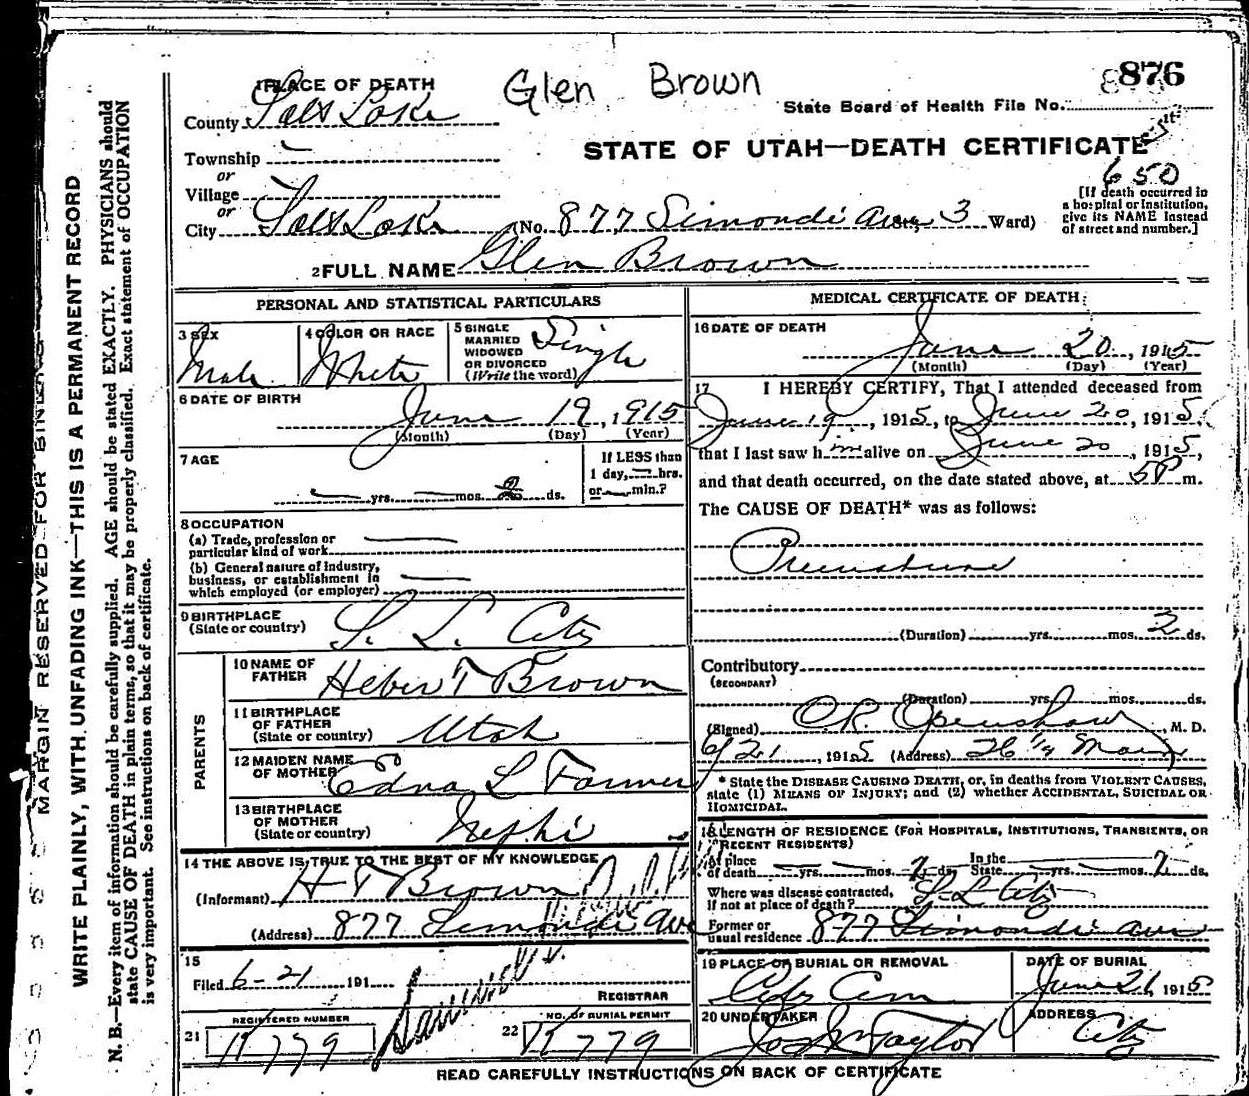 1 PLACE OF DEATH
Glen Brown
876
County Salt Lake
State Board of Health File No.
STATE OF UTAH—DEATH CERTIFICATE
Township
or
Village
or
City Salt Lake (No. 877 Simondi Ave St.; 3 Ward)
650
[If death occurred in a hospital or institution, give its NAME instead of street and number.]
2 FULL NAME Glen Brown
PERSONAL AND STATISTICAL PARTICULARS
3 SEX Male
4 COLOR OR RACE White
5 SINGLE MARRIED WIDOWED OR DIVORCED (Write the word) Single
6 DATE OF BIRTH
June 19, 1915
(Month) (Day) (Year)
7 AGE
yrs. mos. 2 ds.
If LESS than 1 day, hrs. or min.?
8 OCCUPATION
(a) Trade, profession or particular kind of work
(b) General nature of industry, business, or establishment in which employed (or employer)
9 BIRTHPLACE (State or country) S. L. City
PARENTS
10 NAME OF FATHER Heber T Brown
11 BIRTHPLACE OF FATHER (State or country) Utah
12 MAIDEN NAME OF MOTHER Edna L Farmer
13 BIRTHPLACE OF MOTHER (State or country) Nephi
14 THE ABOVE IS TRUE TO THE BEST OF MY KNOWLEDGE
(Informant) H T Brown
(Address) 877 Simondi Ave
15
Filed 6-21 191
REGISTRAR
REGISTERED NUMBER
21 K 779
NO. OF BURIAL PERMIT
22 K 779
MEDICAL CERTIFICATE OF DEATH
16 DATE OF DEATH
June 20, 1915
(Month) (Day) (Year)
17 I HEREBY CERTIFY, That I attended deceased from
June 19, 1915, to June 20, 1915,
that I last saw him alive on June 20, 1915,
and that death occurred, on the date stated above, at 5 P m.
The CAUSE OF DEATH* was as follows:
Premature
(Duration) yrs. mos. 2 ds.
Contributory
(SECONDARY)
(Duration) yrs. mos. ds.
(Signed) C.R. Openshaw, M. D.
6/21, 1915 (Address) 26 1/2 Main
* State the DISEASE CAUSING DEATH, or, in deaths from VIOLENT CAUSES, state (1) MEANS OF INJURY; and (2) whether ACCIDENTAL, SUICIDAL OR HOMICIDAL.
18 LENGTH OF RESIDENCE (FOR HOSPITALS, INSTITUTIONS, TRANSIENTS, OR RECENT RESIDENTS)
At place of death yrs. mos. 2 ds. In the State mos. 2 ds.
Where was disease contracted, if not at place of death? S L City
Former or usual residence 877 Simondi Ave
19 PLACE OF BURIAL OR REMOVAL City Cem
DATE OF BURIAL June 21, 1915
20 UNDERTAKER Jos Wm Taylor
ADDRESS City
READ CAREFULLY INSTRUCTIONS ON BACK OF CERTIFICATE
MARGIN RESERVED FOR BINDING
WRITE PLAINLY, WITH UNFADING INK—THIS IS A PERMANENT RECORD
N. B.—Every item of information should be carefully supplied. AGE should be stated EXACTLY. PHYSICIANS should
state CAUSE OF DEATH in plain terms, so that it may be properly classified. Exact statement of OCCUPATION
is very important. See instructions on back of certificate.